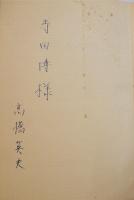 寺田博様
高橋英夫